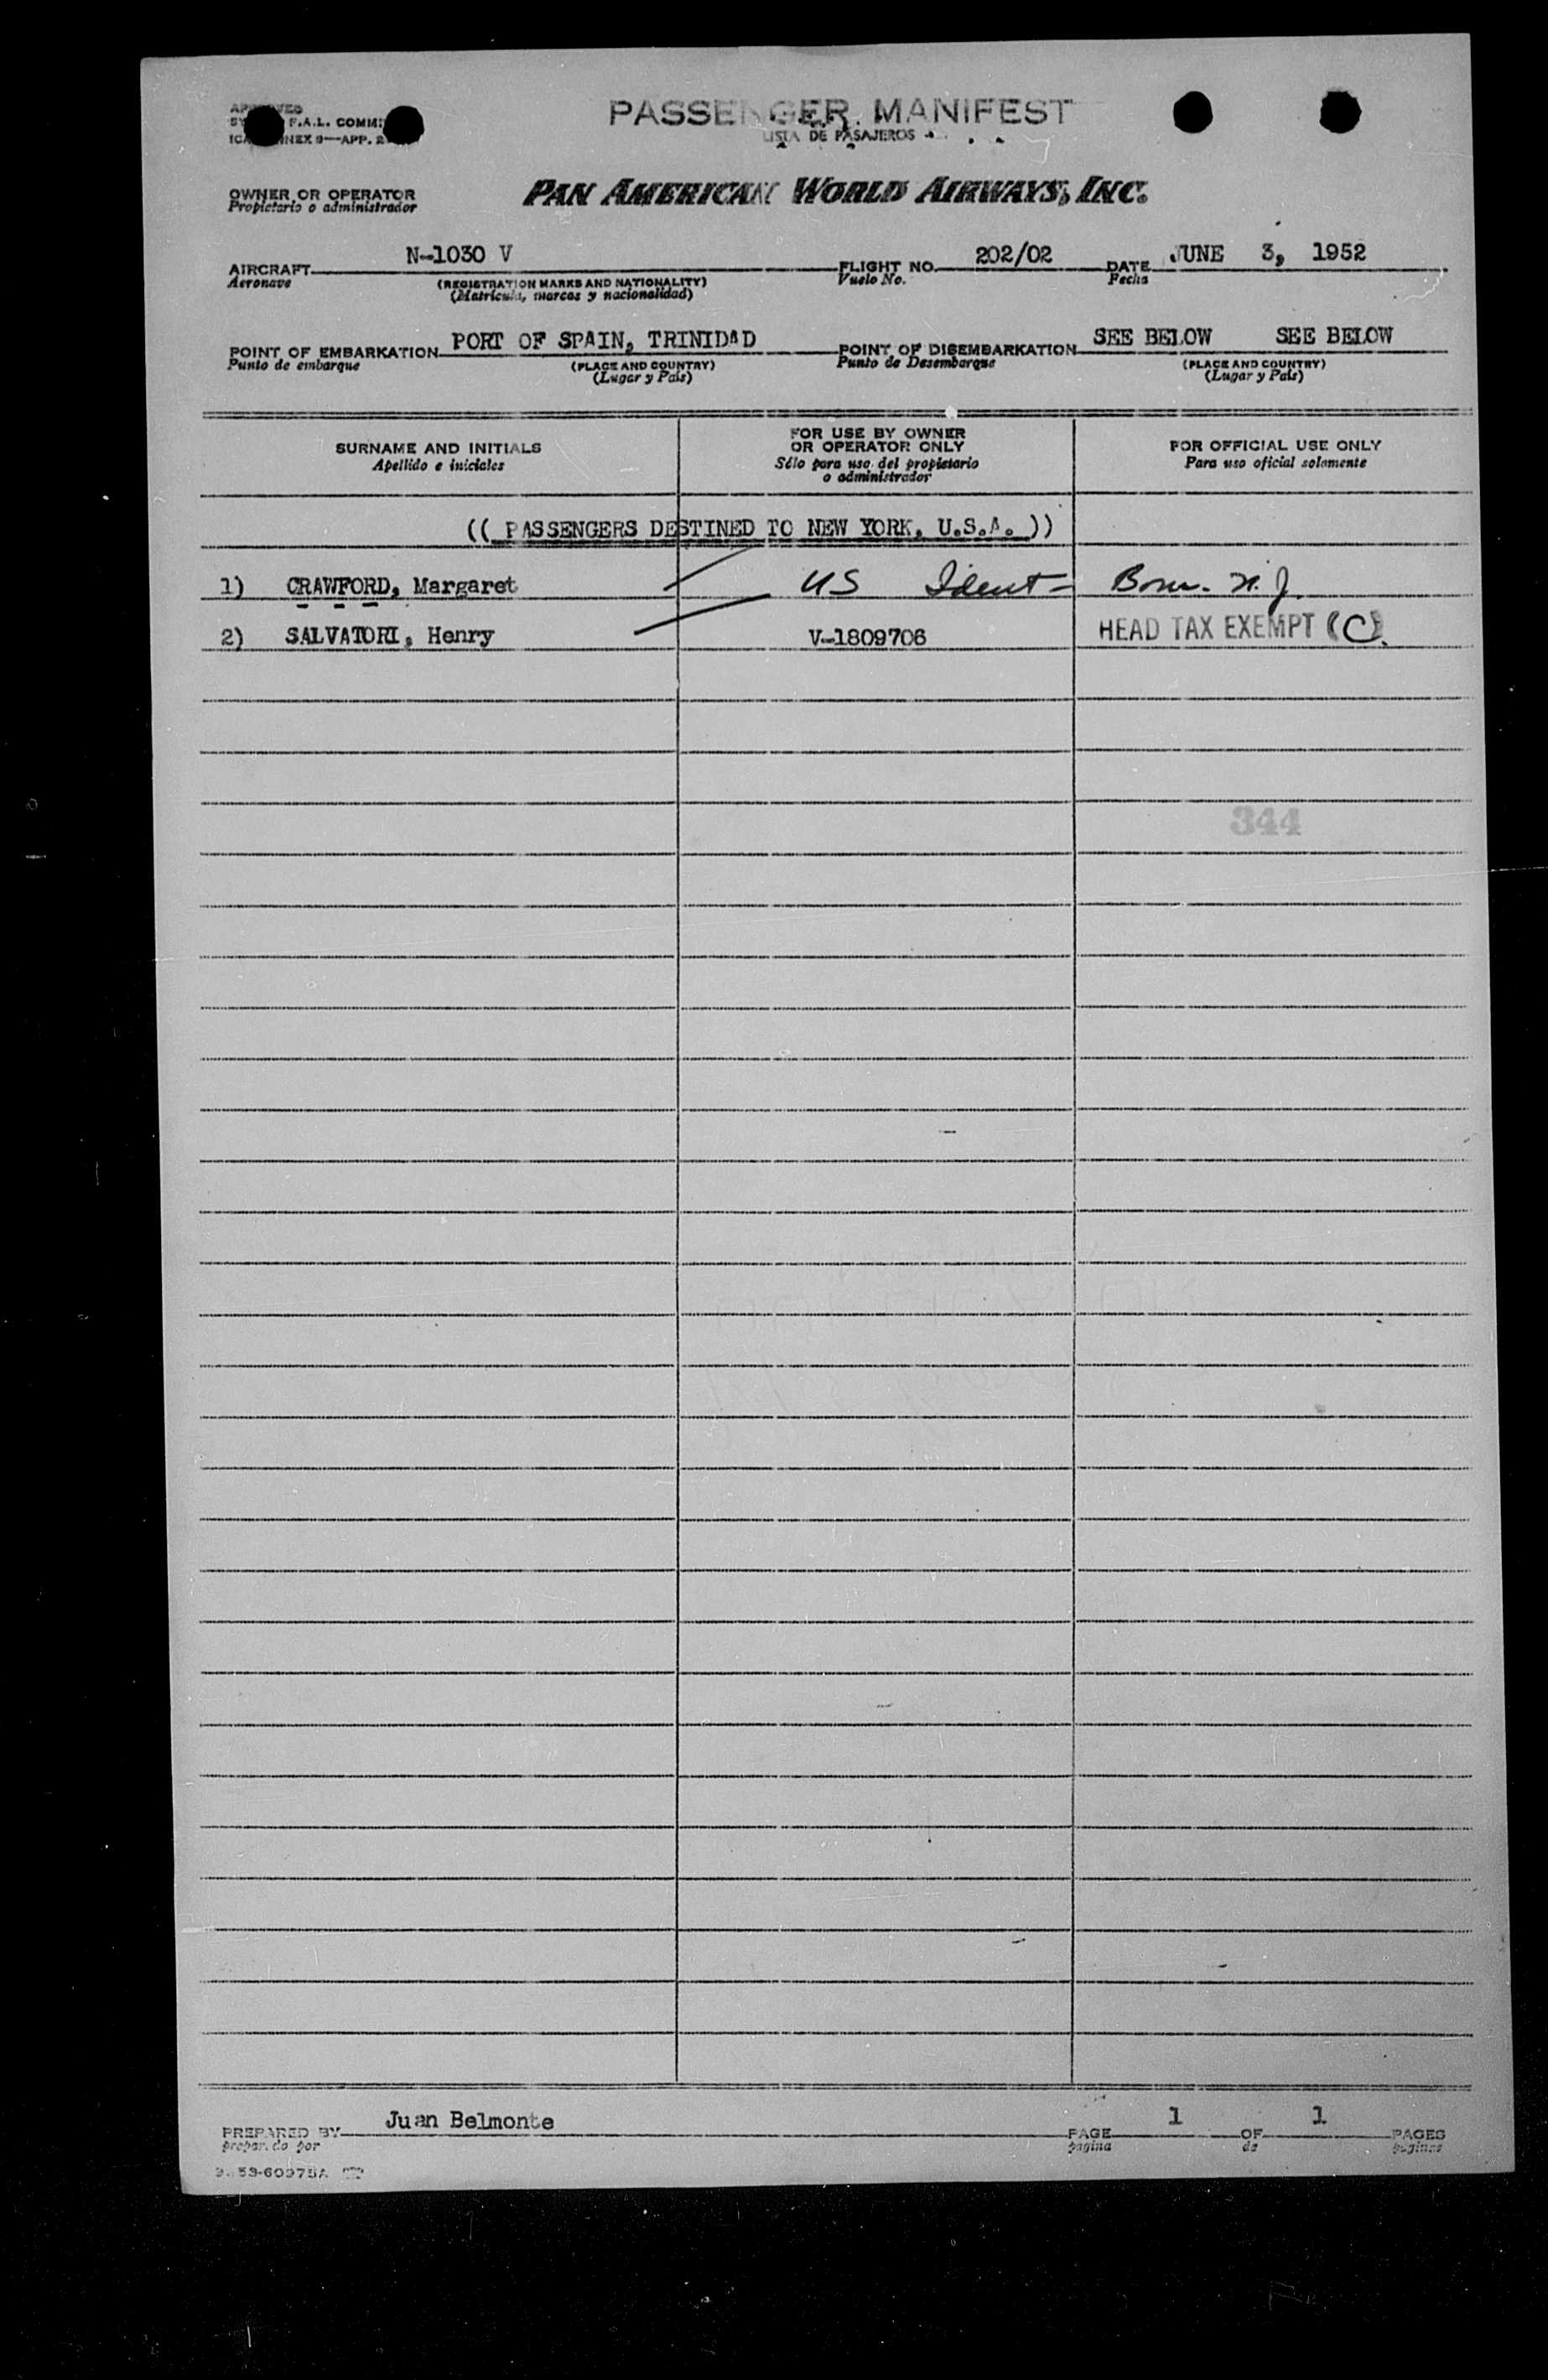 PASSENGER MANIFEST
LISTA DE PASAJEROS
F.A.L. COMM:
ANNEX 9—APP. 2
OWNER OR OPERATOR PAN AMERICAN WORLD AIRWAYS, INC.
Propietario o administrador
AIRCRAFT N-1030 V FLIGHT NO. 202/02 DATE JUNE 3, 1952
Aeronave (REGISTRATION MARKS AND NATIONALITY) Vuelo No. Fecha
(Matricula, marcas y nacionalidad)
POINT OF EMBARKATION PORT OF SPAIN, TRINIDAD POINT OF DISEMBARKATION SEE BELOW SEE BELOW
Punto de embarque (PLACE AND COUNTRY) Punto de Desembarque (PLACE AND COUNTRY)
(Lugar y País) (Lugar y País)
SURNAME AND INITIALS
Apellido e iniciales
FOR USE BY OWNER
OR OPERATOR ONLY
Sólo para uso del propietario
o administrador
FOR OFFICIAL USE ONLY
Para uso oficial solamente
(( PASSENGERS DESTINED TO NEW YORK, U.S.A. ))
1) CRAWFORD, Margaret US Ident- Born. N.J.
2) SALVATORI, Henry V-1809706 HEAD TAX EXEMPT (C).
344
PREPARED BY Juan Belmonte PAGE 1 OF 1 PAGES
preparado por pagina de paginas